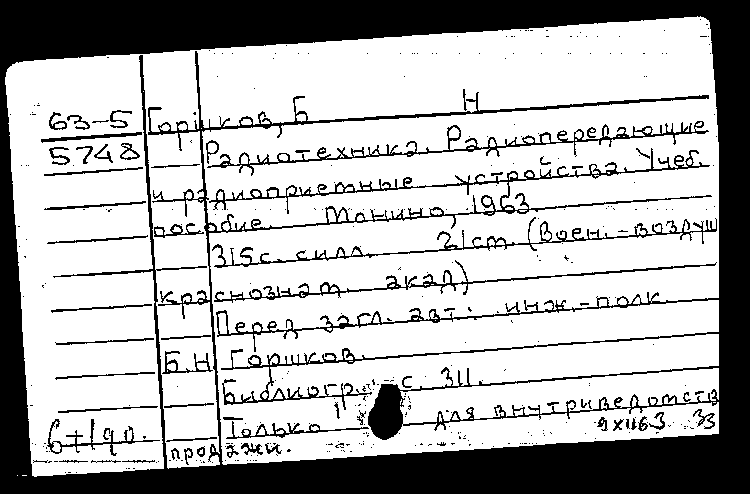 63-5 Горшков, Б Н
5748 Радиотехника. Радиопередающие
и радиоприемные устройства. Учеб.
пособие. Монино, 1963.
315с. силл. 21cm. (Воен.-воздуш
краснознам. акад)
Перед загл. авт: инж.-полк.
Б.Н Горшков.
Библиогр.: с. 311.
Только для внутриведомств
продажи.
6+1qo.